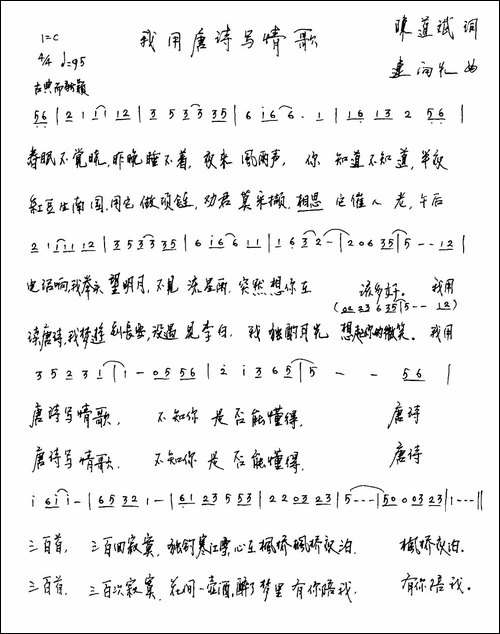 1=C 我用唐诗写情歌 陈道斌 词
4/4 ♩=95 孟向礼 曲
古典而新颖
56 | 2 1 1 1 12 | 3 5 3 3 35 | 6 i 6 6 . 1 | 16 13 2 56 |
春眠不觉晓，昨晚睡不着，夜来风雨声，你 知道不知道，半夜
红豆生南国，用它做项链，劝君莫采撷，相思它催人老，午后
2 1 1 11 12 | 3 5 3 3 35 | 6 i 6 6 11 | 1 6 3 2 - | 2 0 6 35 | 5 - - 12 |
电话响，我举头望明月，不见流星雨，突然想你在 该多好。 我用
(02 23 6 35 | 5 - - 12)
读唐诗，我梦游到长安，没遇见李白，我独酌月光 想起你的微笑。我用
3 5 2 3 1 | 1 - 05 56 | 2 i 3 6 5 | 5 - - 56 |
唐诗写情歌， 不知你是否能懂得， 唐诗
唐诗写情歌， 不知你是否能懂得， 唐诗
i 6 i i - | 6 5 3 2 1 - | 61 23 5 53 | 22 03 23 | 5 - - - | 50 00 3 23 | 1 - - - ||
三百首， 三百回寂寞，独钓寒江雪，心在枫桥枫桥夜泊， 枫桥夜泊。
三百首， 三百次寂寞，花间一壶酒，醉了梦里有你陪我， 有你陪我。